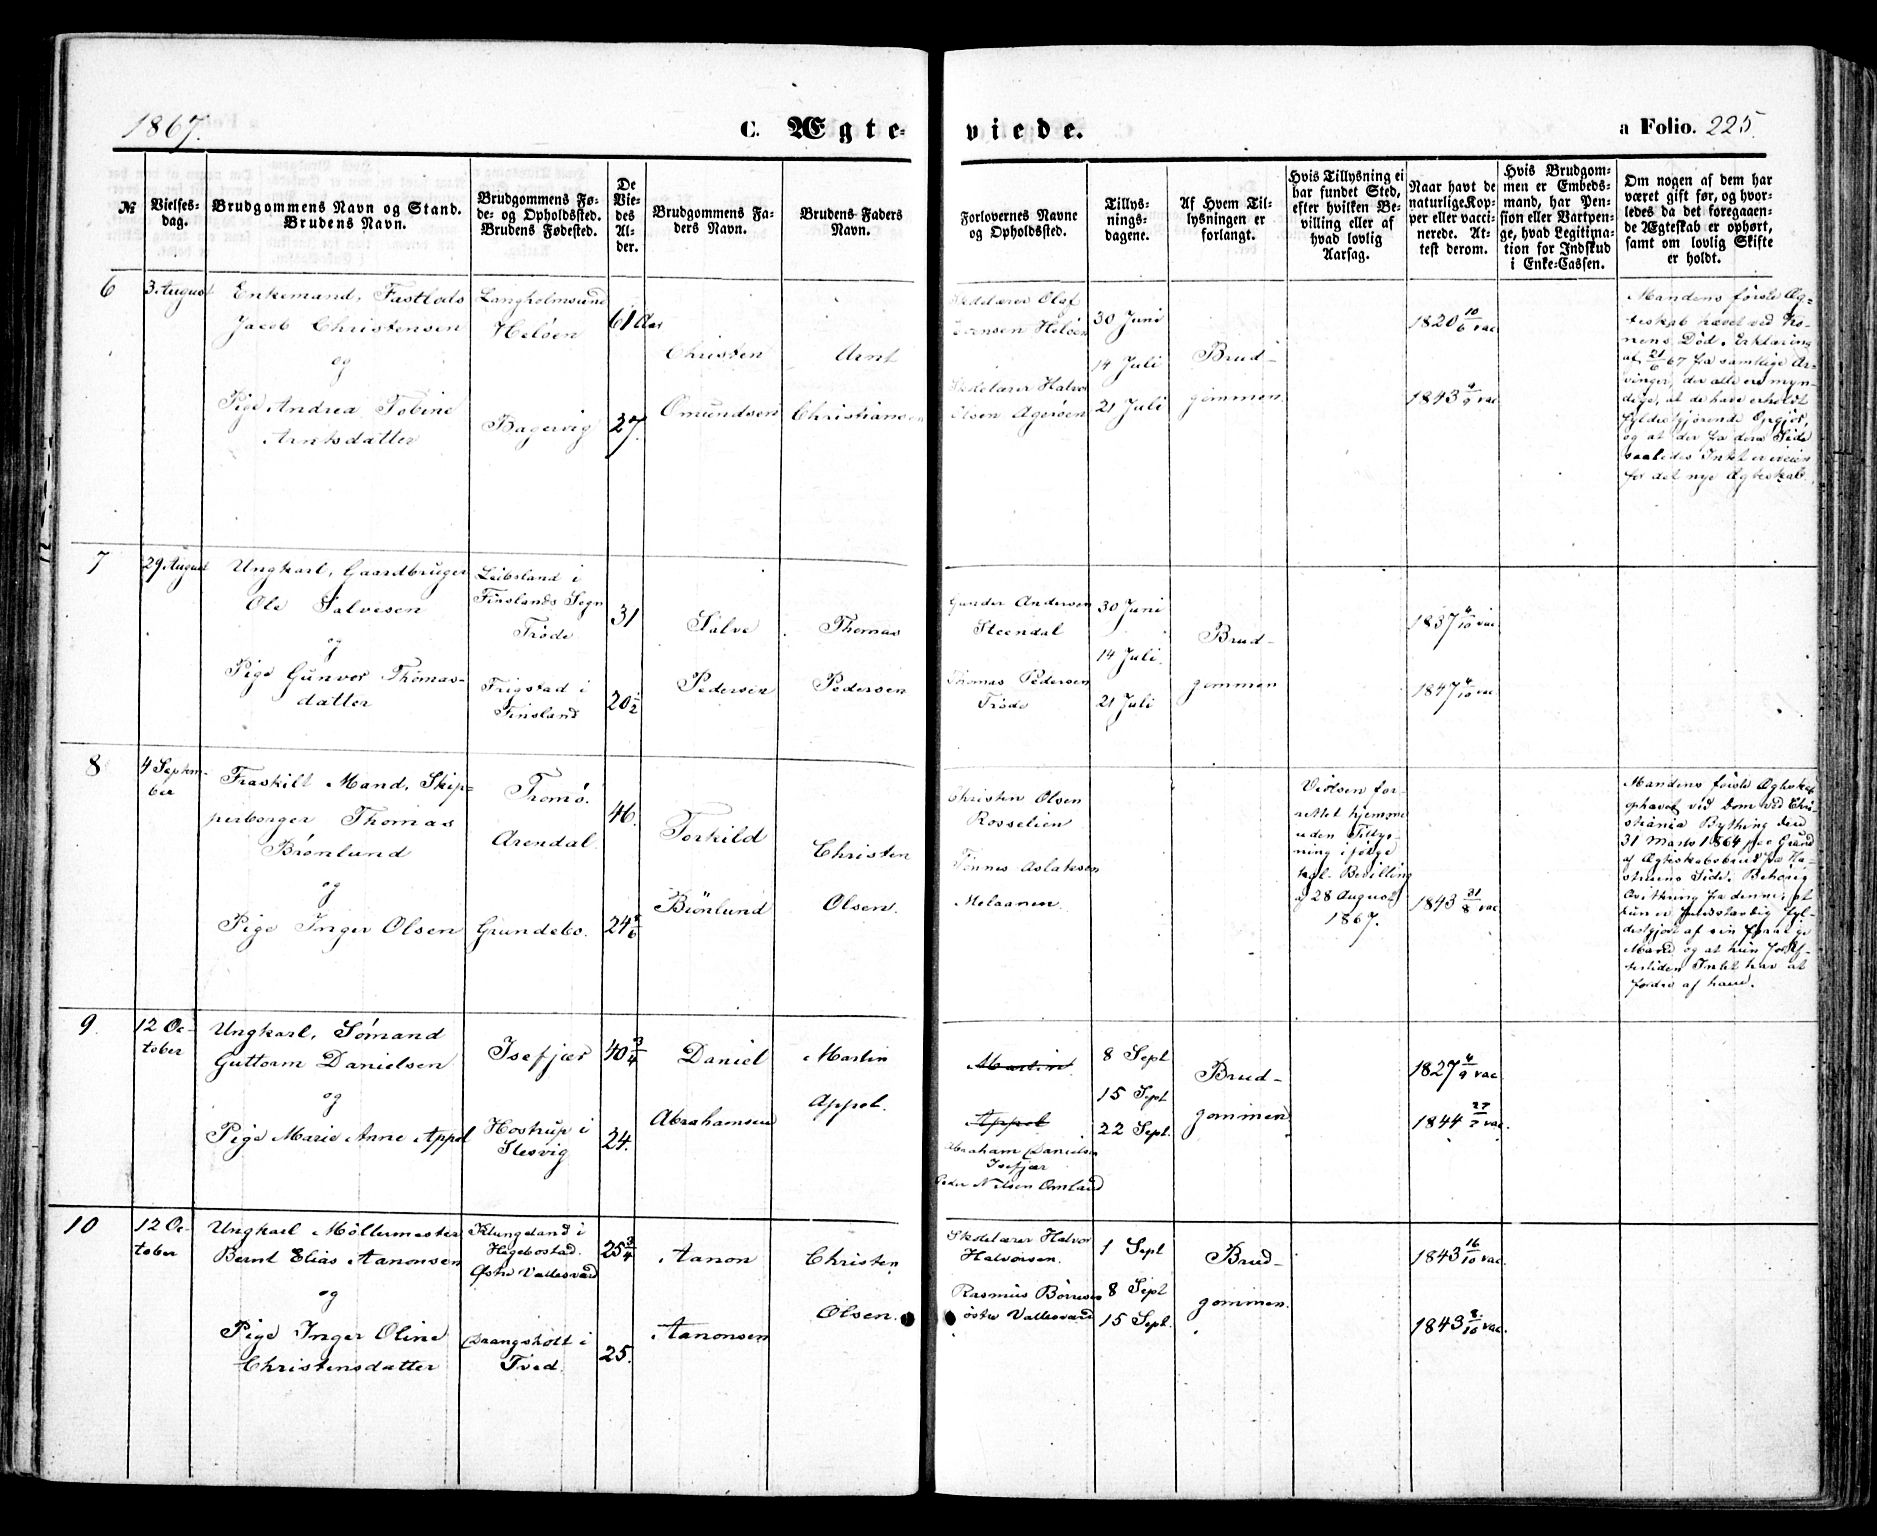 1867.
C. Ægte-
viede.
a Folio. 225.
№
Vielses-
dag.
Brudgommens Navn og Stand.
Brudens Navn.
Brudgommens Fø-
de- og Opholdssted.
Brudens Fødested.
De
Vie-
des
Al-
der.
Brudgommens Fa-
ders Navn.
Brudens Faders
Navn.
Forlovernes Navne
og Opholdssted.
Tillys-
nings-
dagene.
Af Hvem Til-
lysningen er
forlangt.
Hvis Tillysning ei
har fundet Sted,
efter hvilken Be-
villing eller af
hvad lovlig
Aarsag.
Naar havt de
naturlige Kop-
per eller vacci-
nerede. At-
test derom.
Hvis Brudgom-
men er Embeds-
mand, har Pen-
sion eller Vartpen-
ge, hvad Legitima-
tion for Indskud
i Enke-Cassen.
Om nogen af dem har
været gift før, og hvor-
ledes da det foregaaen-
de Ægteskab er ophørt,
samt om lovlig Skifte
er holdt.
6
3 August
Enkemand, Fastlods
Jacob Christensen
og
Pige Andrea Tobine
Arntsdatter
Langholmsund
Heløen
Bagervig
61 Aar
27
Christen
Omundsen
Arnt
Christiansen
Skolelærer Olaf
Hansen Heløen
Skolelærer Halvor
Olsen Agerøen
30 Juni
14 Juli
21 Juli
Brud-
gommen
1820 10/6 vac
1843 4/9 vac
Mandens første Æg-
teskab hævet ved Ko-
nens Død. Erklæring
af 21/6 67 fra samtlige Ar-
vinger, der alle ere myn-
dige, at de have erholdt
fyldestgjørende Opgjør,
og at der fra deres Side
saaledes Intet er iveien
for det nye Ægteskab.
7
29 August
Ungkarl, Gaardbruger
Ole Salvesen
og
Pige Gunvor Thomas-
datter
Leibsland i
Finslands Sogn
Frøde
Frigstad i
Finsland
31
20 1/2
Salve
Pedersen
Thomas
Pedersen
Gunder Andersen
Steendal
Thomas Pedersen
Frøde
30 Juni
14 Juli
21 Juli
Brud-
gommen
1837 4/10 vac
1847 4/10 vac
8
4 Septem-
ber
Fraskilt Mand, Skip-
perborger Thomas
Brønlund
og
Pige Inger Olsen
Tromø.
Arendal.
Grundebo.
46.
24 5/6
Torkild
Brønlund
Christen
Olsen.
Christen Olsen
Rosselien
Tønnes Aslaksen
Melaanen.
Vielsen for-
rettet hjemme
uden Tillys-
ning ifølge
kgl. Bevilling
af 28 August
1867.
1843 31/8 vac
Mandens første Ægteskab
ophævet ved Dom ved Chri-
stiania Bything den
31 Marts 1864 paa Grund
af Ægteskabsbrud fra Ko-
nens Side. Behørig
Qvittering fra denne, at
hun er fuldstændig fyl-
destgjort af sin forrige
Mand og at hun for Ef-
tertiden Intet har at
fordre af ham.
9
12 Oc-
tober
Ungkarl, Sømand
Guttorm Danielsen
og
Pige Marie Anne Appel
Isefjær
Hostrup i
Slesvig
40 3/4
24.
Daniel
Abrahamsen
Martin
Appel.
Martin
Appel
Abraham Danielsen
Isefjær
Peder Nilsen Omland
8 Sept
15 Sept
22 Sept.
Brud-
gommen
1827 4/9 vac
1844 27/7 vac.
10
12 Oc-
tober
Ungkarl Møllermester
Bernt Elias Aanonsen
og
Pige Inger Oline
Christensdatter
Klungeland i
Hegebostad.
Østre Vallesværd
Draangsholt i
Tved.
25 3/4
25.
Aanon
Aanonsen
Christen
Olsen.
Skolelærer Halvor
Halvorsen.
Rasmus Børresen
østre Vallesværd
1 Sept
8 Sept
15 Sept.
Brud-
gommen.
1843 16/10 vac.
1843 8/10 vac.